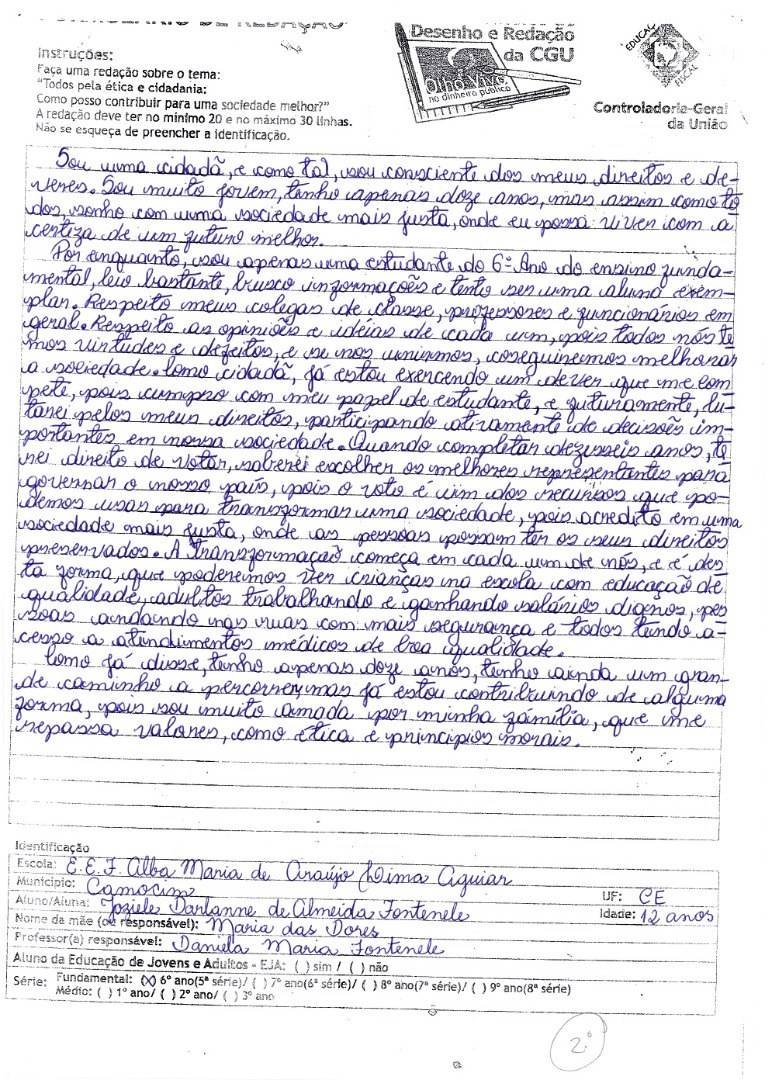 Desenho e Redação
da CGU
Olho Vivo
no dinheiro público
EDUCAÇÃO
FISCAL
Controladoria-Geral
da União
Instruções:
Faça uma redação sobre o tema:
"Todos pela ética e cidadania:
Como posso contribuir para uma sociedade melhor?"
A redação deve ter no mínimo 20 e no máximo 30 linhas.
Não se esqueça de preencher a identificação.
Sou uma cidadã, e como tal, sou consciente dos meus direitos e de-
veres. Sou muito jovem, tenho apenas doze anos, mas assim como to
dos, sonho com uma sociedade mais justa, onde eu possa viver com a
certiza de um futuro melhor.
Por enquanto, sou apenas uma estudante do 6º Ano do ensino funda-
mental, leio bastante, busco informações e tento ser uma aluna exem-
plar. Respeito meus colegas de classe, professores e funcionários em
geral. Respeito as opiniões e ideias de cada um, pois todos nós te
mos virtudes e defeitos, e se nos unirmos, coseguiremos melhorar
a sociedade. Como cidadã, já estou exercendo um dever que me com
pete, pois cumpro com meu papel de estudante, e futuramente, lu-
tarei pelos meus direitos, participando ativamente de decisões im-
portantes em nossa sociedade. Quando completar dezesseis anos, te
rei direito de votar, saberei escolher os melhores representantes para
governar o nosso país, pois o voto é um dos recursos que po-
demos usar para transformar uma sociedade, pois acredito em uma
sociedade mais justa, onde as pessoas possam ter os seus direitos
preservados. A transformação começa em cada um de nós, e é des
ta forma, que poderemos ver crianças na escola com educação de
qualidade, adultos trabalhando e ganhando salários dignos, pes
soas andando nas ruas com mais segurança e todos tendo a-
cesso a atendimentos médicos de boa qualidade.
Como já disse, tenho apenas doze anos, tenho ainda um gran-
de caminho a percorrer, mas já estou contribuindo de alguma
forma, pois sou muito amada por minha família, que me
repassa valores, como ética e princípios morais.
Identificação
Escola: E.E.F. Alba Maria de Araújo Lima Aguiar
Município: Camocim UF: CE
Aluno/Aluna: Joziele Darlanne de Almeida Fontenele Idade: 12 anos
Nome da mãe (ou responsável): Maria das Dores
Professor(a) responsável: Daniela Maria Fontenele
Aluno da Educação de Jovens e Adultos - EJA: ( ) sim / ( ) não
Série: Fundamental: (X) 6º ano(5ª série)/ ( ) 7º ano(6ª série)/ ( ) 8º ano(7ª série)/ ( ) 9º ano(8ª série)
Médio: ( ) 1º ano/ ( ) 2º ano/ ( ) 3º ano
2º